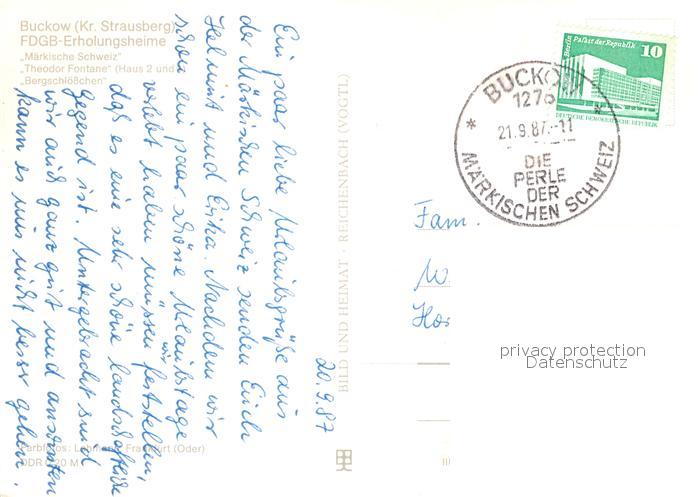 Buckow (Kr. Strausberg)
FDGB-Erholungsheime
„Märkische Schweiz“
„Theodor Fontane“ (Haus 2 und
„Bergschlößchen“
20.9.87
Ein paar liebe Urlaubsgrüße aus
der Märkischen Schweiz senden Euch
Helmut und Erika. Nachdem wir
schon ein paar schöne Urlaubstage
verlebt haben müssen wir feststellen,
daß es eine sehr schöne landschaftliche
Gegend ist. Untergebracht sind
wir auch ganz gut und ansonsten
kann es uns nicht besser gehen.
Farbfotos: Lehmann, Frankfurt (Oder)
DDR 0,20 M
BILD UND HEIMAT · REICHENBACH (VOGTL)
Berlin Palast der Republik
10
DEUTSCHE DEMOKRATISCHE REPUBLIK
BUCKOW
1276
21.9.87-11
DIE
PERLE
DER
MÄRKISCHEN SCHWEIZ
Fam.
privacy protection
Datenschutz